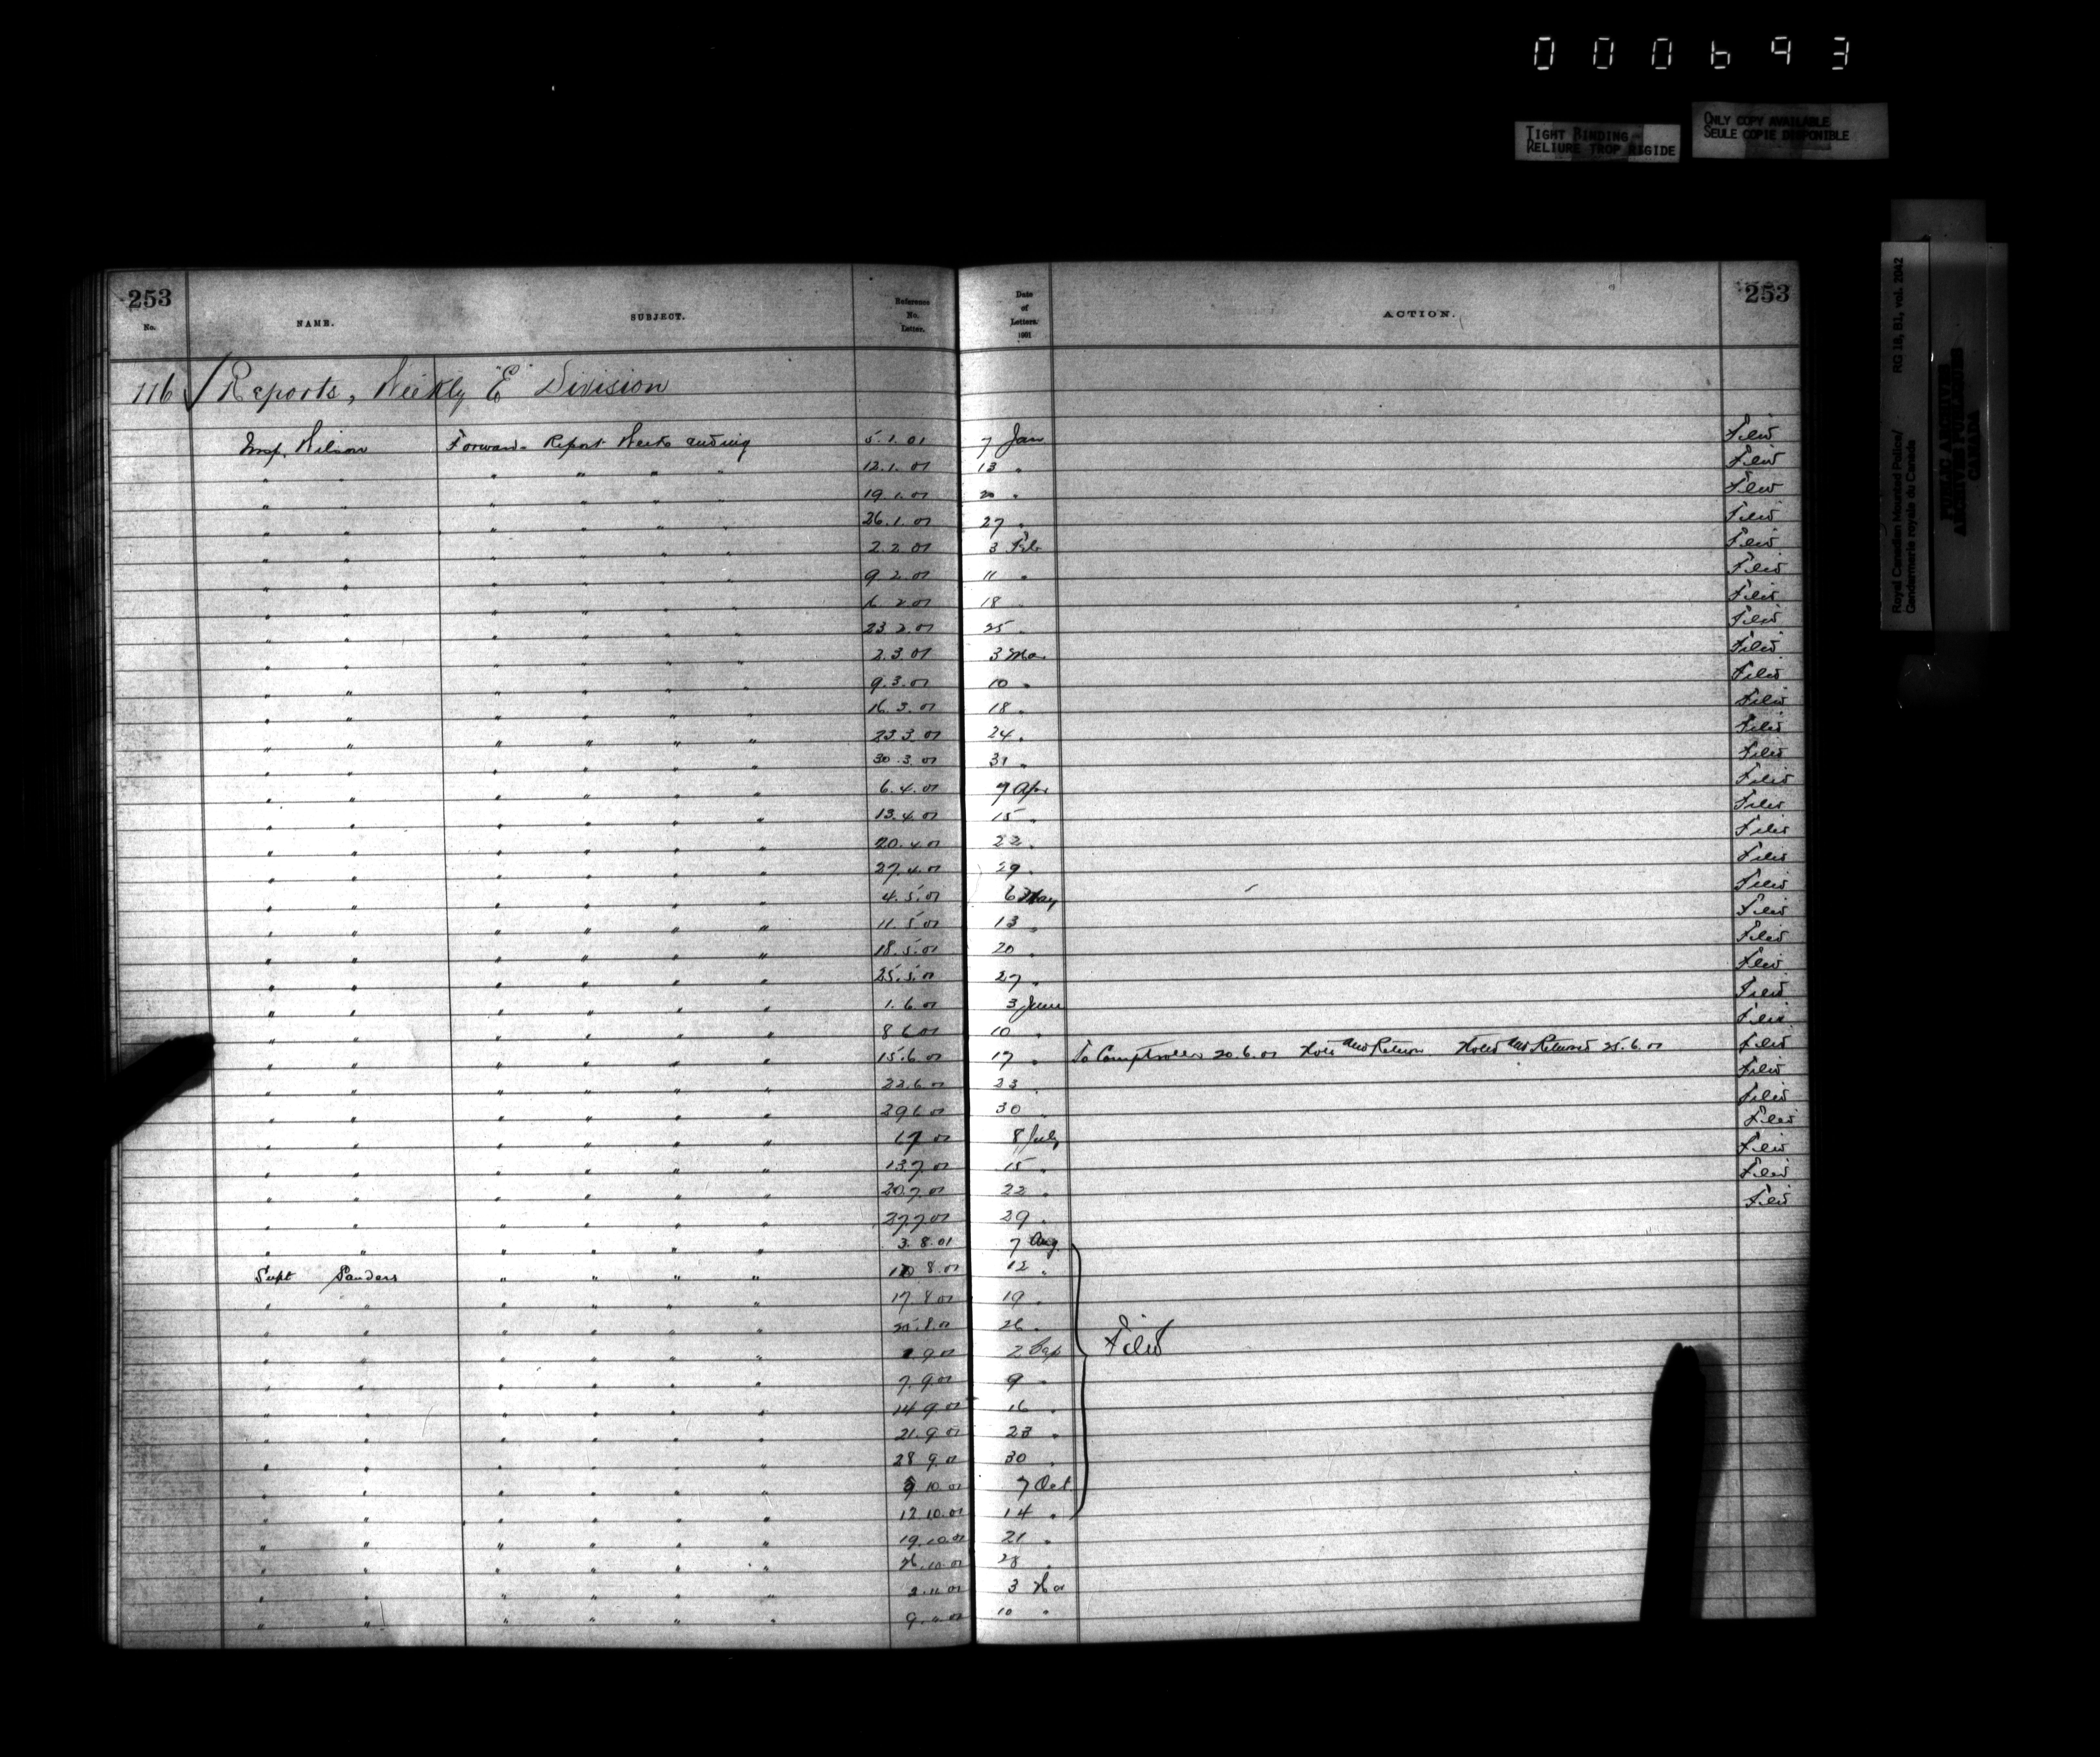 000693
TIGHT BINDING
RELIURE TROP RIGIDE
ONLY COPY AVAILABLE
SEULE COPIE DISPONIBLE
Royal Canadian Mounted Police/ RG 18, B1, vol. 2042
Gendarmerie royale du Canada
PUBLIC ARCHIVES
ARCHIVES PUBLIQUES
CANADA
253 253
No. NAME. SUBJECT. Reference No. Letter. Date of Letters. 1901 ACTION.
116 ✓ Reports, Weekly "E" Division
Insp. Wilson Forward- Report Week ending 5.1.01 7 Jan Filed
" " " " " " 12.1.01 13 " Filed
" " " " " " 19.1.01 20 " Filed
" " " " " " 26.1.01 27 " Filed
" " " " " " 2.2.01 3 Feb Filed
" " " " " " 9.2.01 11 " Filed
" " " " " " 16.2.01 18 " Filed
" " " " " " 23.2.01 25 " Filed
" " " " " " 2.3.01 3 Mar Filed
" " " " " " 9.3.01 10 " Filed
" " " " " " 16.3.01 18 " Filed
" " " " " " 23.3.01 24 " Filed
" " " " " " 30.3.01 31 " Filed
" " " " " " 6.4.01 7 Apr Filed
" " " " " " 13.4.01 15 " Filed
" " " " " " 20.4.01 22 " Filed
" " " " " " 27.4.01 29 " Filed
" " " " " " 4.5.01 6 May Filed
" " " " " " 11.5.01 13 " Filed
" " " " " " 18.5.01 20 " Filed
" " " " " " 25.5.01 27 " Filed
" " " " " " 1.6.01 3 June Filed
" " " " " " 8.6.01 10 " Filed
" " " " " " 15.6.01 17 " To Comptroller 20.6.01 Note and Return Noted and Returned 25.6.01 Filed
" " " " " " 22.6.01 23 " Filed
" " " " " " 29.6.01 30 " Filed
" " " " " " 6.7.01 8 July Filed
" " " " " " 13.7.01 15 " Filed
" " " " " " 20.7.01 22 " Filed
" " " " " " 27.7.01 29 " Filed
" " " " " " 3.8.01 7 Aug
Supt Sanders " " " " 10.8.01 12 "
" " " " " " 17.8.01 19 "
" " " " " " 8.01 26 "
" " " " " " 9.01 2 Sep Filed
" " " " " " 7.9.01 9 "
" " " " " " 14.9.01 16 "
" " " " " " 21.9.01 23 "
" " " " " " 28.9.01 30 "
" " " " " " 10.01 7 Oct
" " " " " " 12.10.01 14 "
" " " " " " 19.10.01 21 "
" " " " " " 26.10.01 28 "
" " " " " " 2.11.01 3 Nov
" " " " " " 9.11.01 10 "